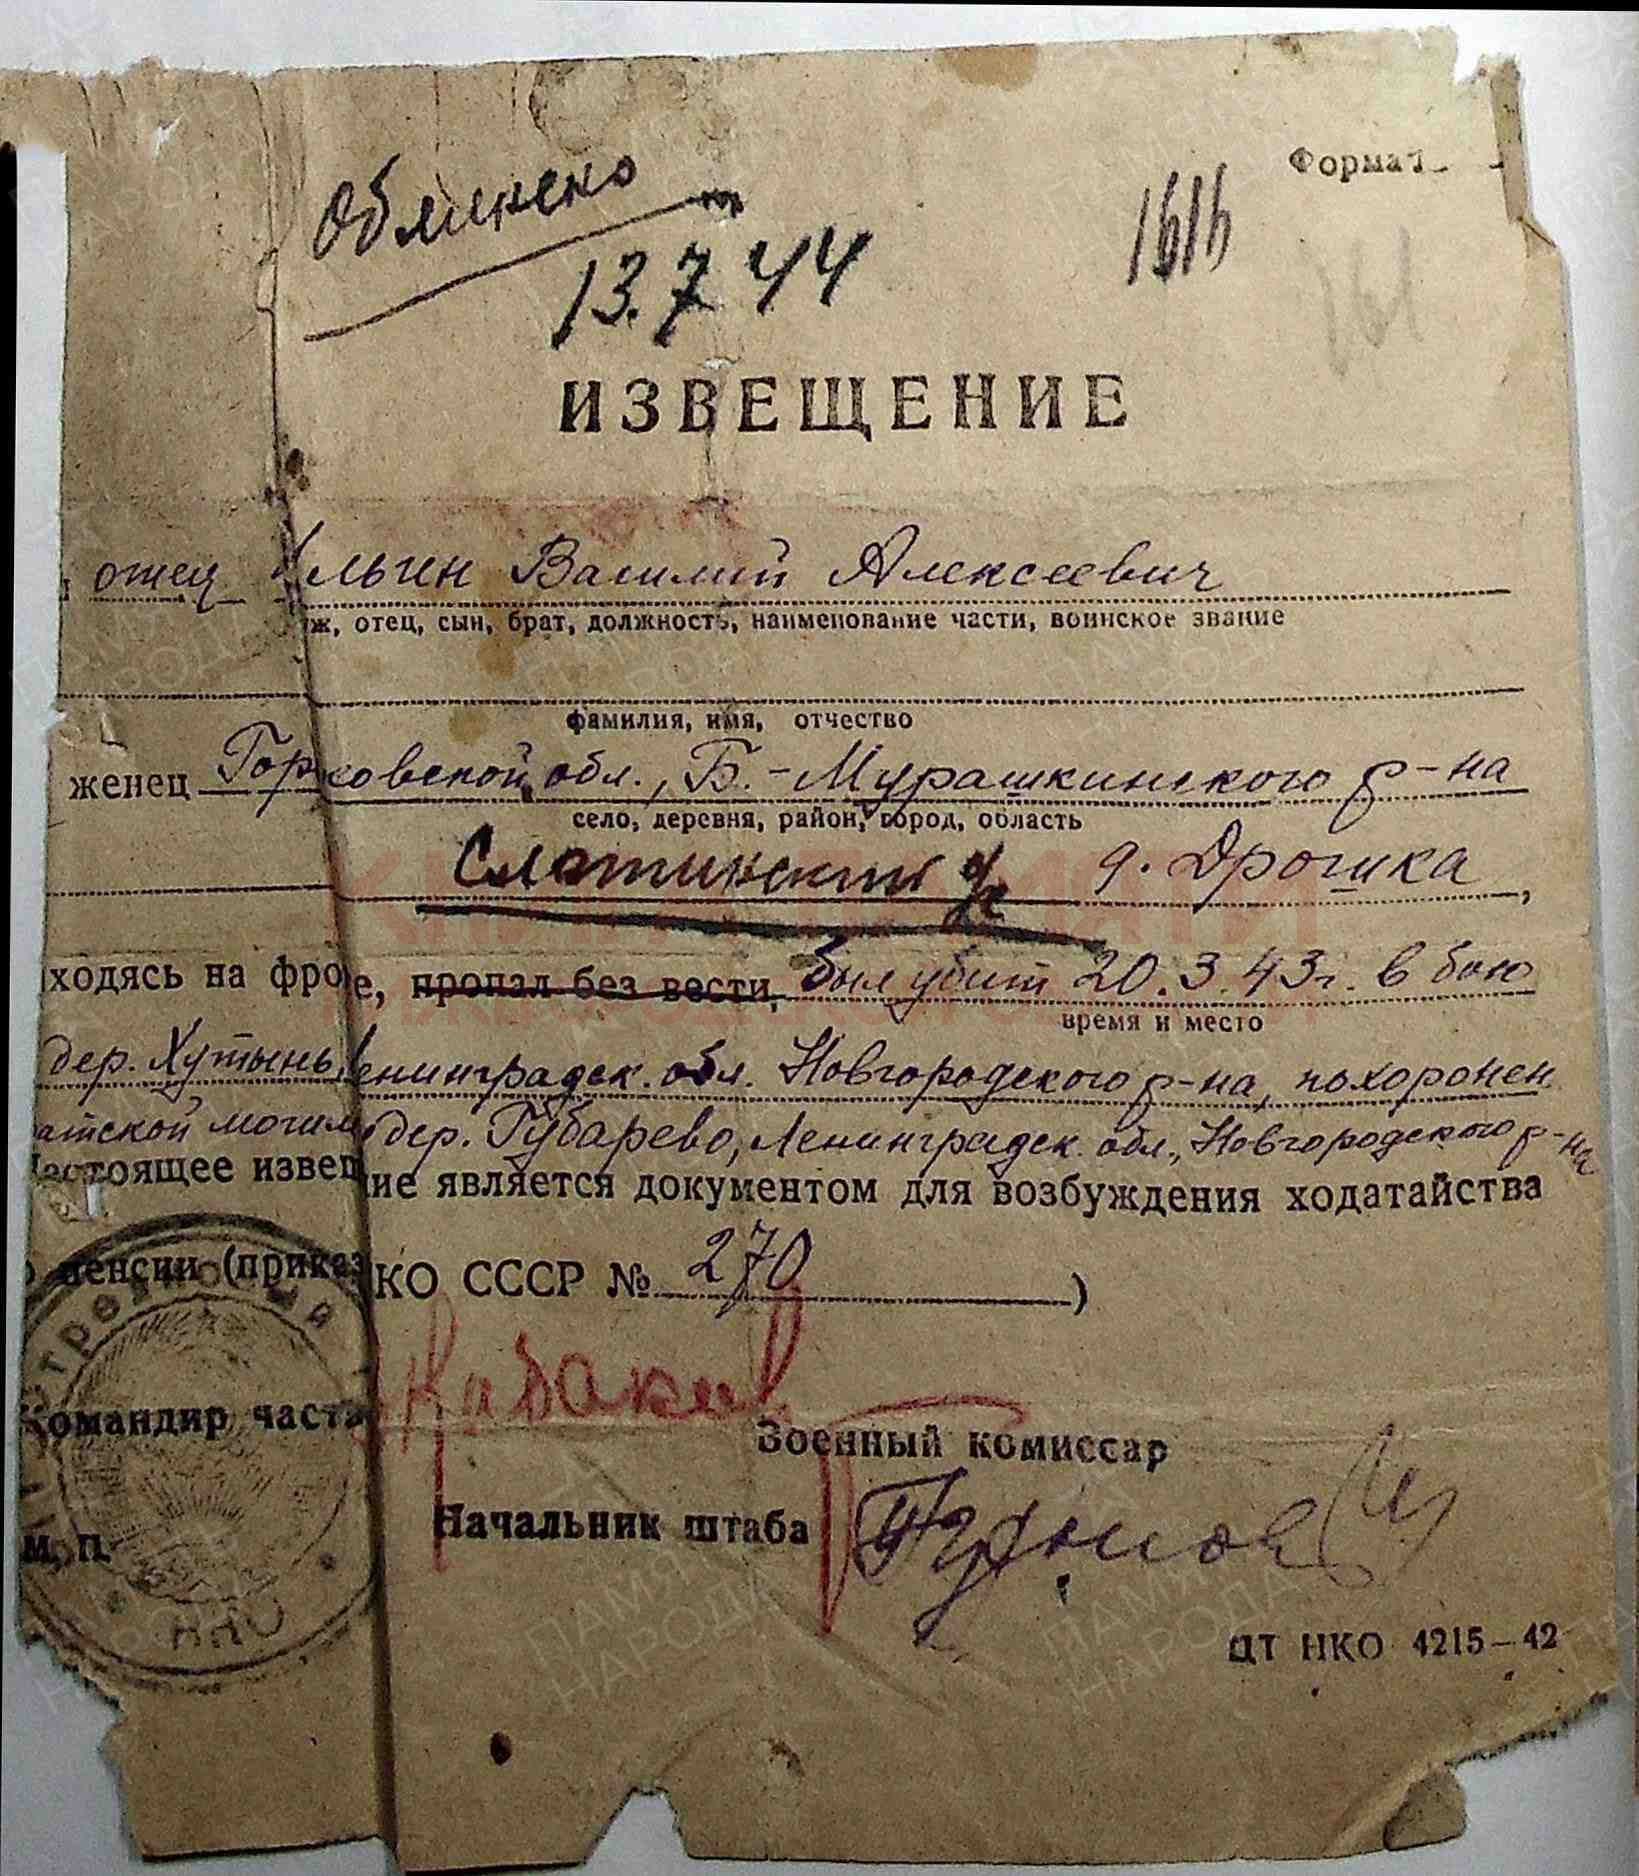 Формат
1616
Обменено
13.7 44
ИЗВЕЩЕНИЕ
отец Ильин Василий Алексеевич
ж, отец, сын, брат, должность, наименование части, воинское звание
фамилия, имя, отчество
женец Горковской обл., Б.-Мурашкинского р-на
село, деревня, район, город, область
д. Дрошка,
ходясь на фро е, пропал без вести, был убит 20.3.43г. в бою
время и место
дер. Хутынь, Ленинградск. обл. Новгородского р-на, похоронен
атской могил дер. Губарево, Ленинградск. обл., Новгородского р-на
Настоящее извещ ие является документом для возбуждения ходатайства
о пенсии (приказ КО СССР № 270 )
Командир части
Военный комиссар
м. п.
Начальник штаба
НКО
ЦТ НКО 4215–42
КНИГА ПАМЯТИ
НИЖЕГОРОДСКОЙ ОБЛАСТИ
ПАМЯТЬ НАРОДА